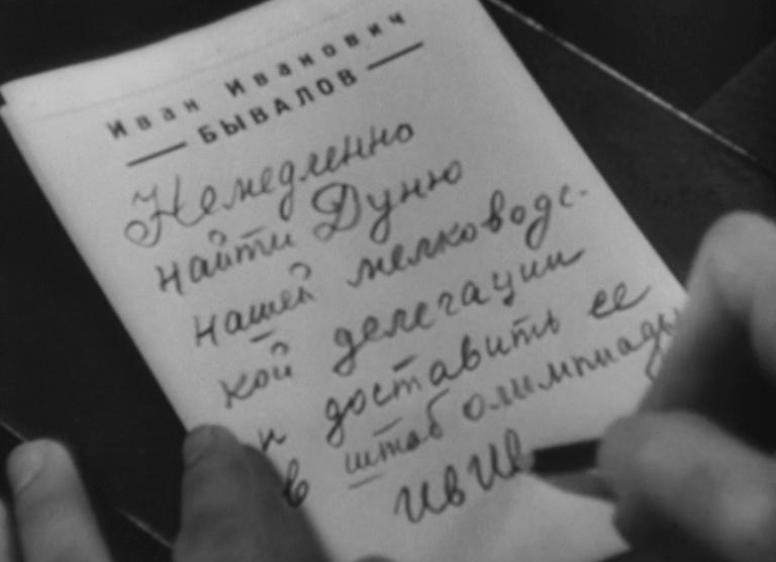 Иван Иванович
БЫВАЛОВ
Немедленно
найти Дуню
нашей мелководс-
кой делегации
и доставить ее
в штаб олимпиады
Ив Ив